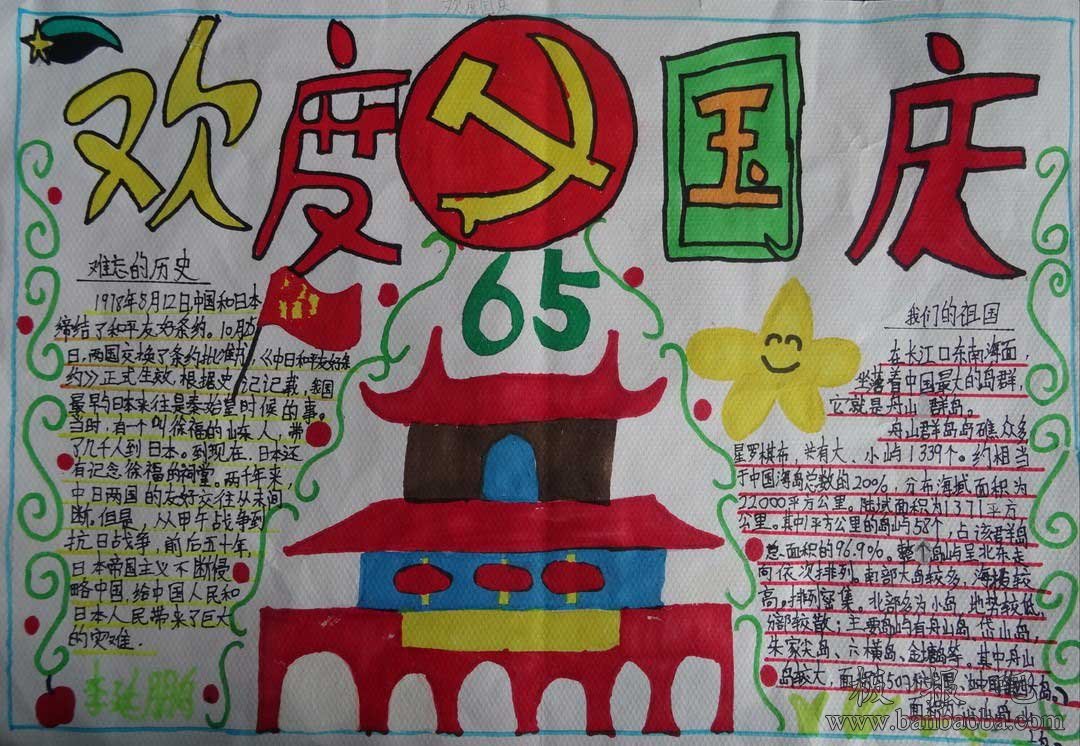 欢度国庆
欢度国庆
65
难忘的历史
1978年8月12日,中国和日本
缔结了和平友好条约。10月23
日,两国交换了条约批准书,《中日和平友好条
约》正式生效。根据史记记载,我国
最早与日本来往是秦始皇时候的事。
当时,有一个叫徐福的山东人,带
了几千人到日本。到现在,日本还
有记念徐福的祠堂。两千年来,
中日两国的友好交往从未间
断。但是,从甲午战争到
抗日战争,前后五十年,
日本帝国主义不断侵
略中国,给中国人民和
日本人民带来了巨大
的灾难.
我们的祖国
在长江口东南海面,
坐落着中国最大的岛群,
它就是舟山群岛。
舟山群岛岛礁众多
星罗棋布,共有大、小屿1339个。约相当
于中国海岛总数的20%,分布海域面积为
22000平方公里。陆域面积为1371平方
公里。其中1平方公里的岛屿58个,占该群岛
总面积的96.9%。整个岛屿呈北东走
向依次排列。南部大岛较多,海拔较
高。排列密集。北部多为小岛,地势较低,
分部较散;主要岛屿有舟山岛、岱山岛,
朱家尖岛、六横岛、金塘岛等。其中舟山
岛较大,面积为503
板报吧
www.banbaoba.com